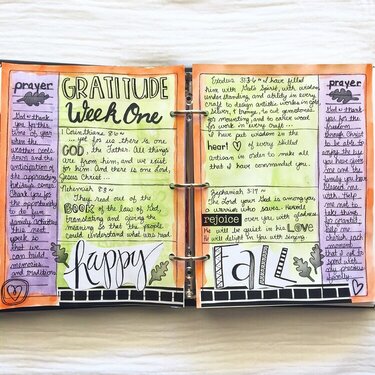 prayer
God thank
you for this
time of year
when the
weather cools
down and the
anticipation
of the approaching
holidays comes.
Thank you for
the opportunity
to do fun
family activities
this next
week so
that we
can build
memories
and traditions
GRATITUDE
Week One
1 Corinthians 8:6~
yet for us there is one
GOD, the Father. All things
are from him, and we exist
for him. And there is one Lord,
Jesus Christ
Nehemiah 8:8~
They read out of the
BOOK of the law of God,
translating and giving the
meaning so that the people
could understand what was read.
happy
Exodus 31:3-6~ I have filled
him with God's Spirit, with wisdom,
understanding, and ability in every
craft to design artistic works in gold,
silver, & bronze, to cut gemstones
for mounting, and to carve wood
for work in every craft...
I have put wisdom in the
heart of every skilled
artisan in order to make all
that I have commanded you.
Zephaniah 3:17~
The Lord your God is among you,
a warrior who saves. He will
rejoice over you with gladness.
He will be quiet in his LOVE
He will delight in you with singing.
FALL
prayer
God thank
you for the
freedom
through Christ
to be able to
enjoy the life
you have given
me and the
family you have
blessed me
with. Help
me not to
take things
for granted.
help me
cherish each
moment
that I get
to spend with
my precious
family